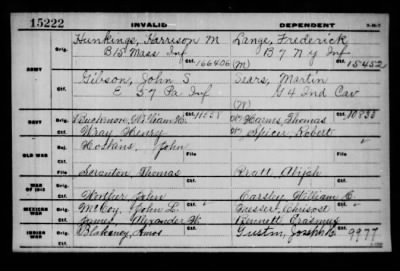 15222 INVALID DEPENDENT
Orig. Hunkings, Harrison M Lange, Frederick
B 15 Mass Inf B 7 N Y Inf
Ctf. 166406 (M) Ctf. 15452
ARMY
Gibson, John S Sears, Martin
E 57 Pa Inf G 4 Ind Cav
Ctf. (W) Ctf.
NAVY Orig. William H. Ctf. 11528 Thomas Ctf. 10835
Wray Henry Spicer, Robert
Rej. Hoskins, John
OLD WAR File File
Scranton, Thomas Pratt Abijah
WAR OF 1812 Ctf. Ctf.
John Carsley William C.
MEXICAN WAR Orig. McCoy, John L. Orig. Chrisost
Ctf. James, Alexander W. Ctf. Kennett Erasmus
INDIAN WAR Orig. Blakeney, Amos Orig. Gustin, Joseph L 9977
Ctf. Ctf.